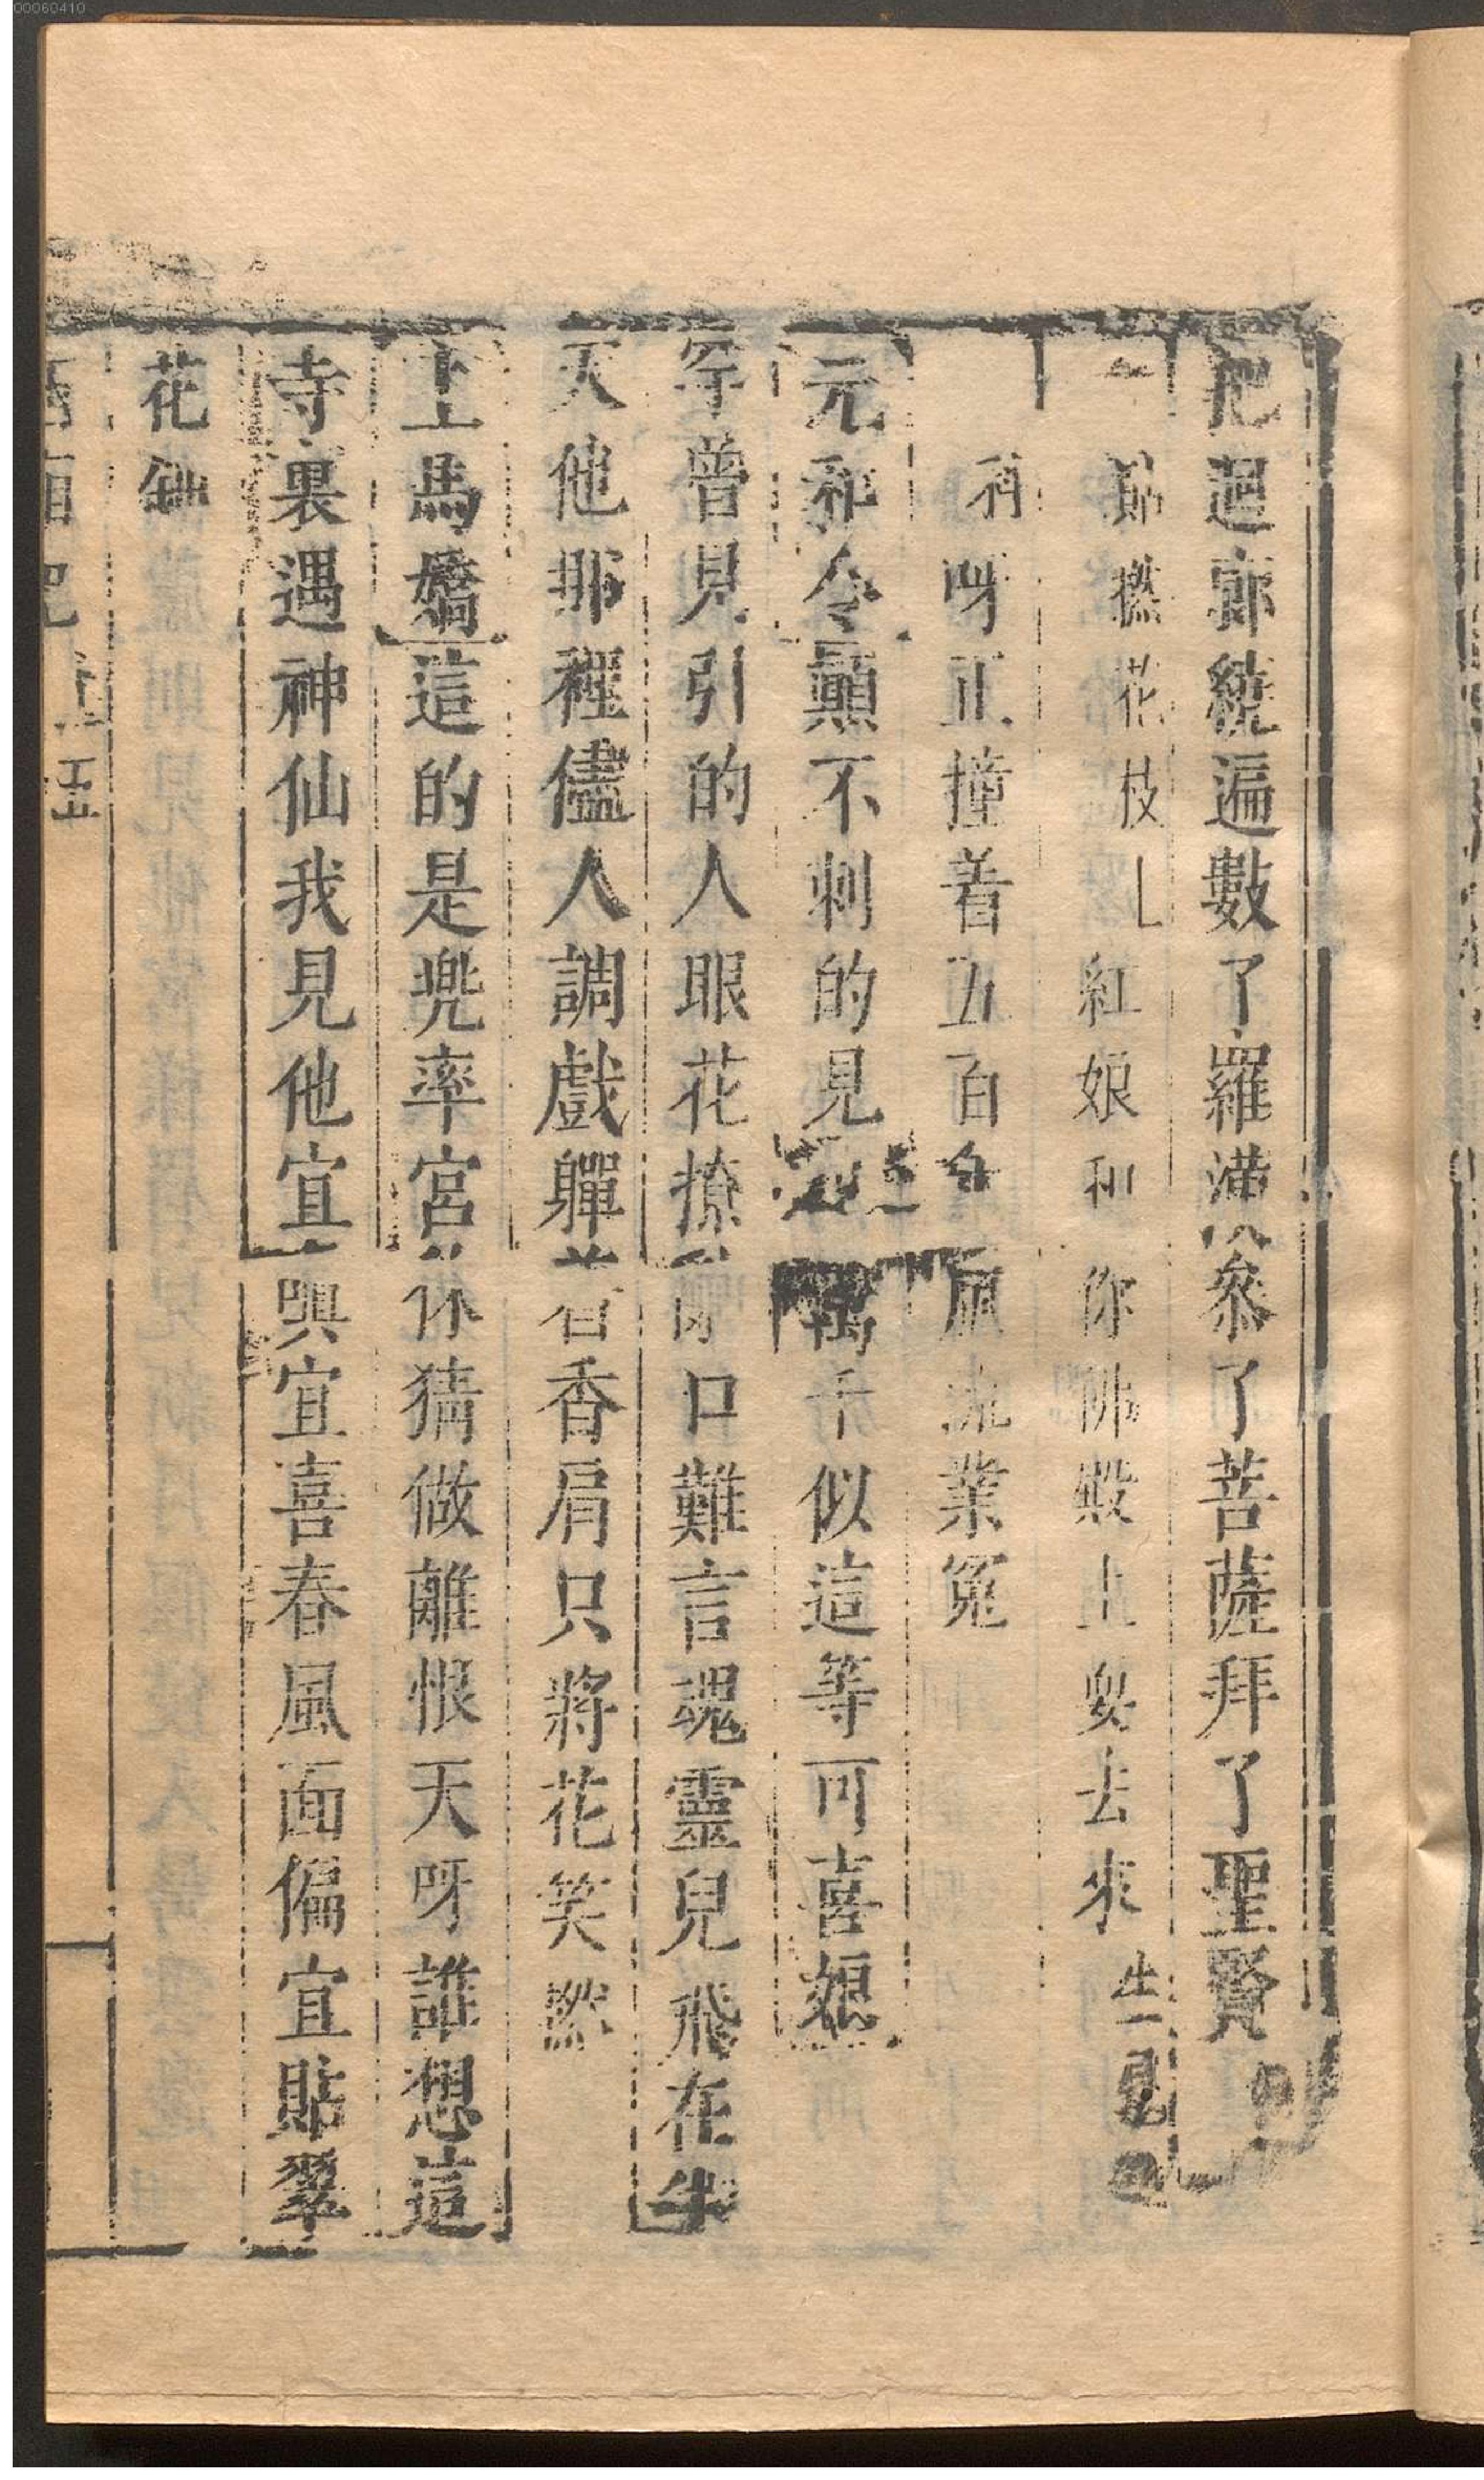 把迴廊繞遍數了羅漢參了菩薩拜了聖賢
撚花枝上紅娘和你佛殿上耍去來生見
科呀正撞着五百年風流業冤
元和令顛不剌的見萬千似這等可喜娘
罕曾見引的人眼花撩口難言魂靈兒飛在半
天他那裡儘人調戲軃着香肩只將花笑撚
上馬嬌這的是兜率宮休猜做離恨天呀誰想這
寺裏遇神仙我見他宜嗔宜喜春風面偏宜貼翠
花鈿
西廂記上
五
00060410